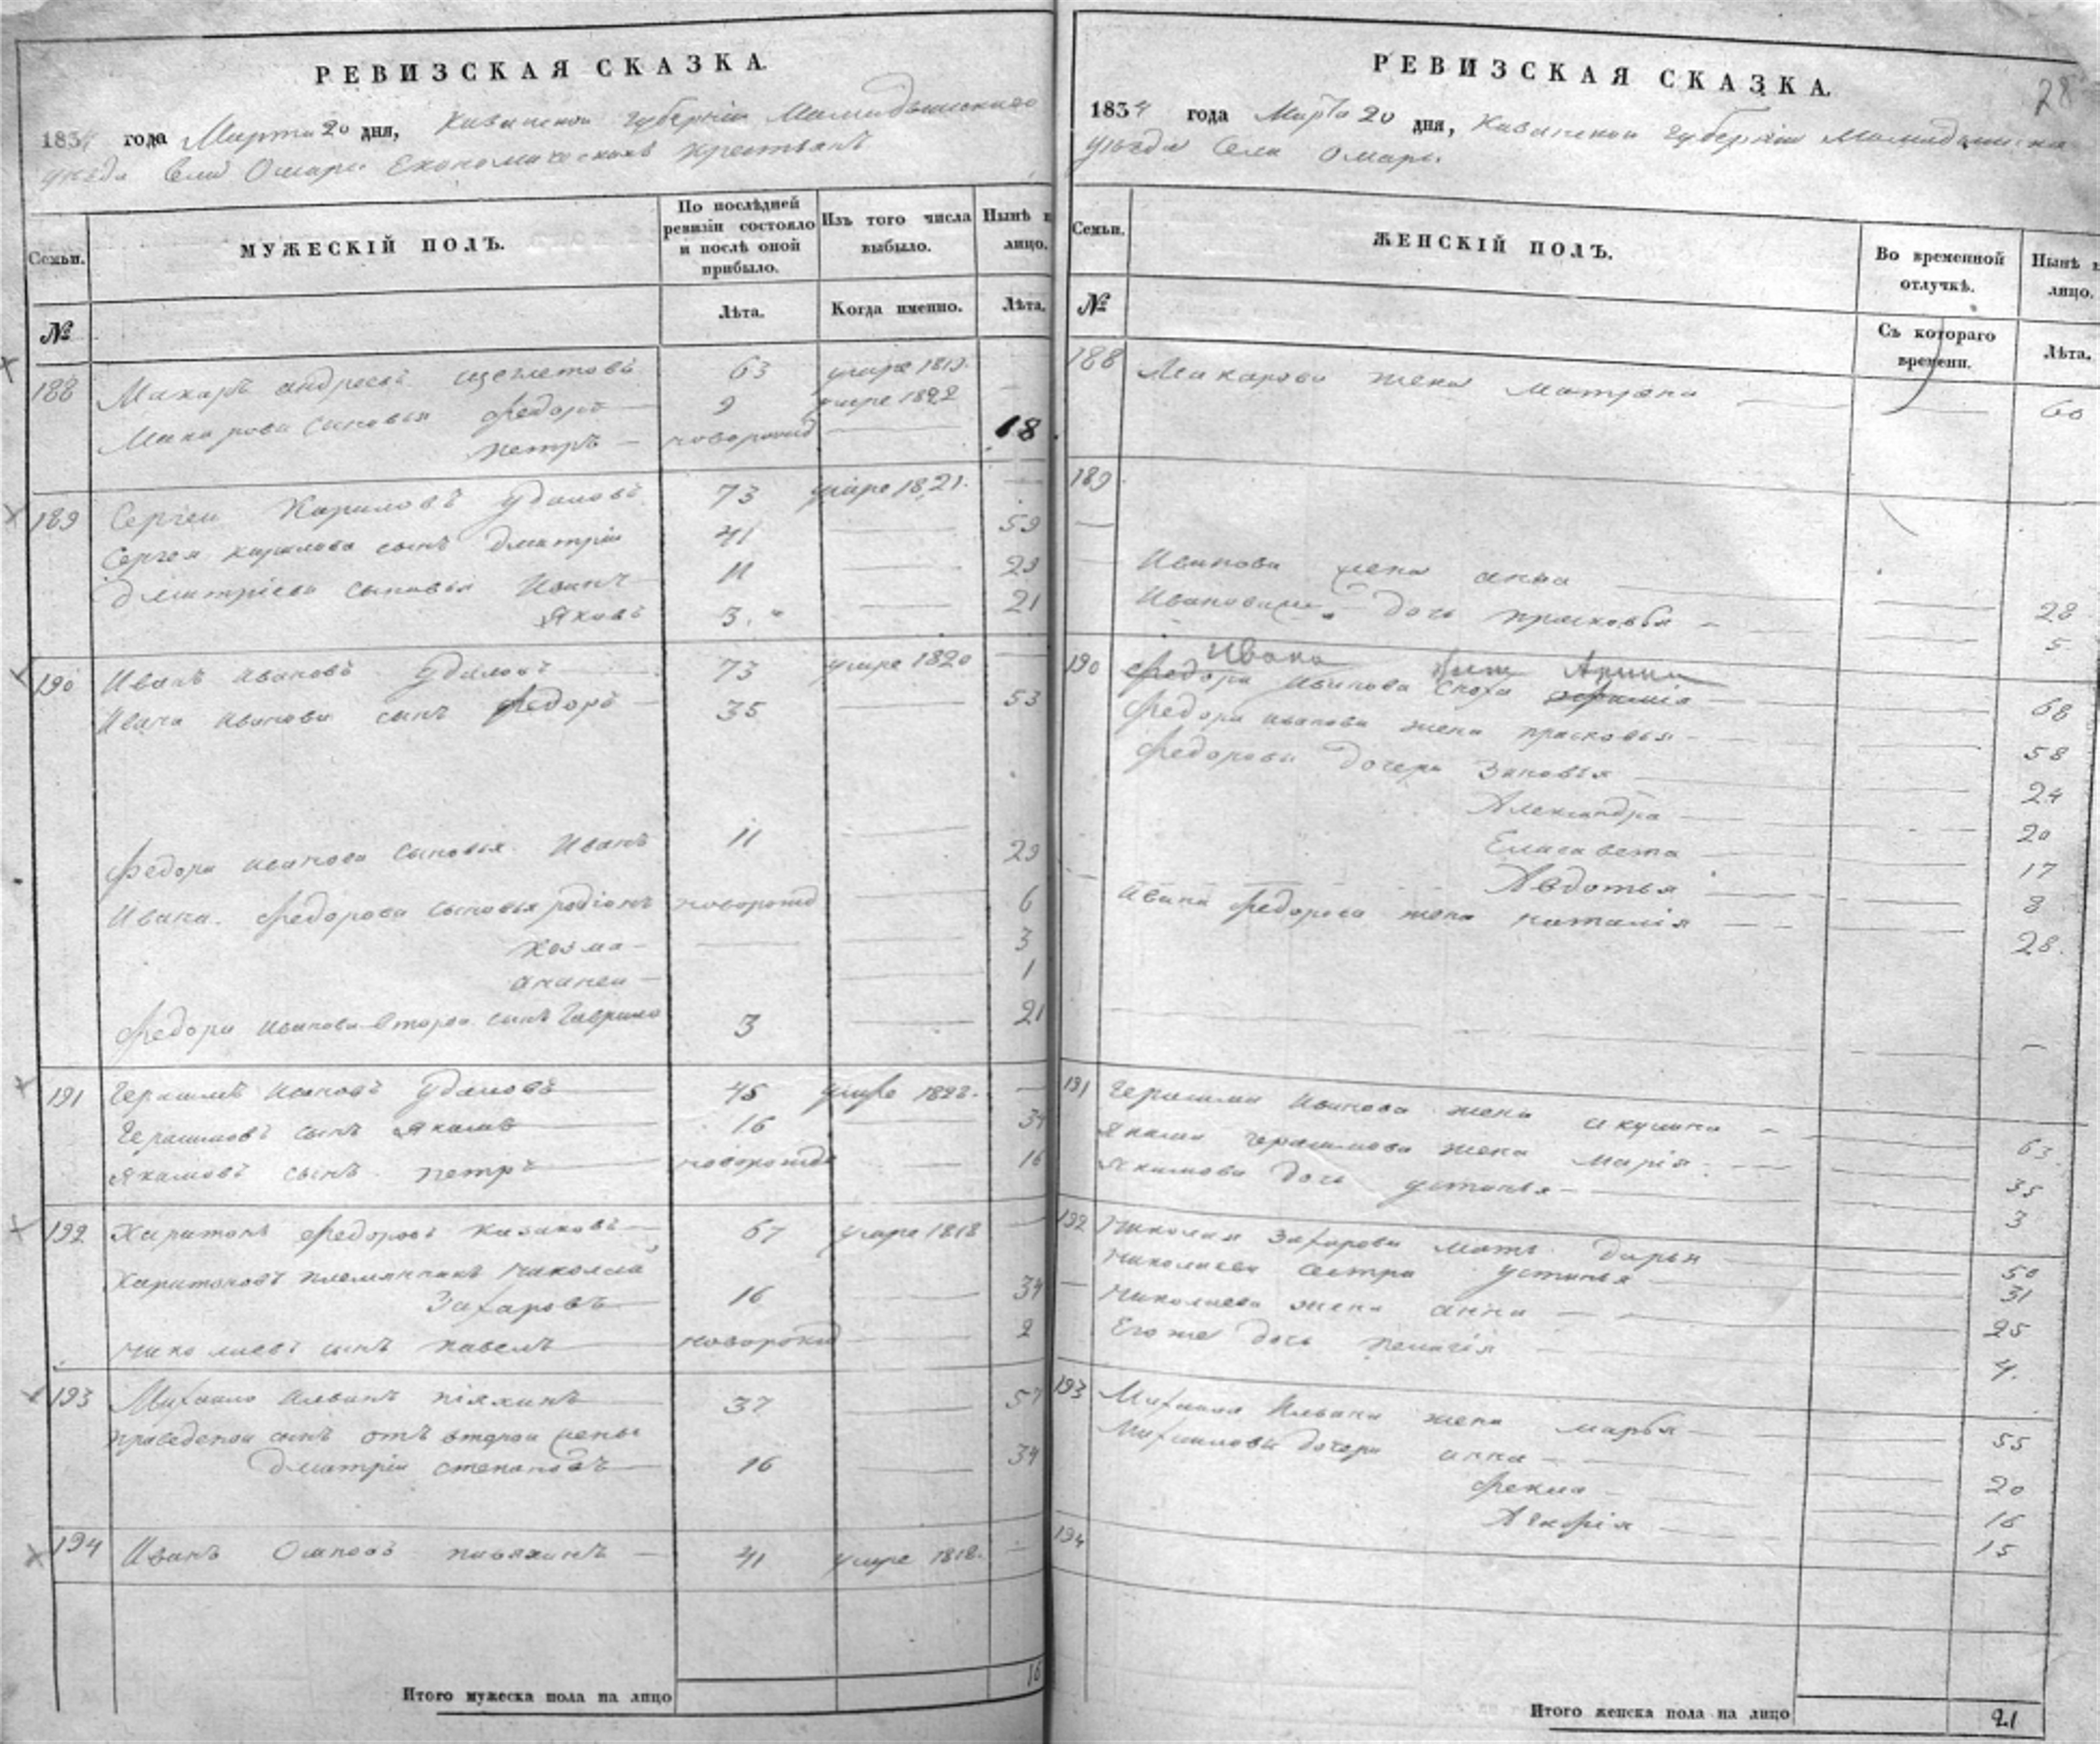 РЕВИЗСКАЯ СКАЗКА.
1834 года Марта 20 дня, Казанской губернiи Мамадышскаго
уезда Села Омары Економическихъ крестьянъ
Семьи.
МУЖЕСКIЙ ПОЛЪ.
По послѣдней ревизiи состояло и послѣ оной прибыло.
Изъ того числа выбыло.
Нынѣ н лицо.
№
Лѣта.
Когда именно.
Лѣта.
188 Макаръ андреевъ 63 умре 1819.
Макарова сыновья Федоръ 9 умре 1822
петръ новорожд 18
189 Сергеи Кириловъ Удаловъ 73 умре 1821.
Сергея кирилова сынъ дмитрiи 41 59
дмитрiева сыновья Иванъ 11 29
Яковъ 3 21
190 Иванъ ивановъ Удаловъ 73 умре 1820
Ивана иванова сынъ Федоръ 35 53
Федора иванова сыновья Иванъ 11 29
Ивана Федорова сыновья родiонъ новорожд 6
козма 3
ананеи 1
Федора иванова второй сынъ Гаврило 3 21
191 Герасимъ Ивановъ Удаловъ 45 умре 1828.
Герасимовъ сынъ Якимъ 16 34
Якимовъ сынъ петръ новорожд 16
192 Харитонъ Федоровъ казаковъ 67 умре 1818
Харитоновъ племянникъ николаи
Захаровъ 16 34
николаевъ сынъ павелъ новорожд 2
193 Михаило Ильинъ 37 57
приведенои сынъ отъ второи жены
дмитрiи степановъ 16 34
194 Иванъ Осиповъ 41 умре 1818.
Итого мужеска пола на лицо 16
РЕВИЗСКАЯ СКАЗКА.
28
1834 года Марта 20 дня, Казанской губернiи Мамадышска
уезда Села Омары
Семьи.
ЖЕНСКIЙ ПОЛЪ.
Во временной отлучкѣ.
Нынѣ н лицо.
№
Съ котораго времени.
Лѣта.
188 Макарова жена матрена 60
189
Иванова жена анна 28
Иванова дочь прасковья 5
Ивана Арина
190 Федора иванова 68
Федора иванова жена прасковья 58
Федоровы дочери Зиновья 24
Александра 20
Елисавета 17
Авдотья 8
Ивана Федорова жена наталiя 28.
191 Герасима Иванова жена акулина 63.
Якима герасимова жена марiя 35
Якимова дочь устинья 3
192 Николая Захарова мать дарья 50
николаева сестра устинья 31
николаева жена анна 25
Его же дочь пелагiя 4.
193 Михаила Ильина жена марья 55
Михаиловы дочери анна 20
Фекла 16
15
194
Итого женска пола на лицо 21